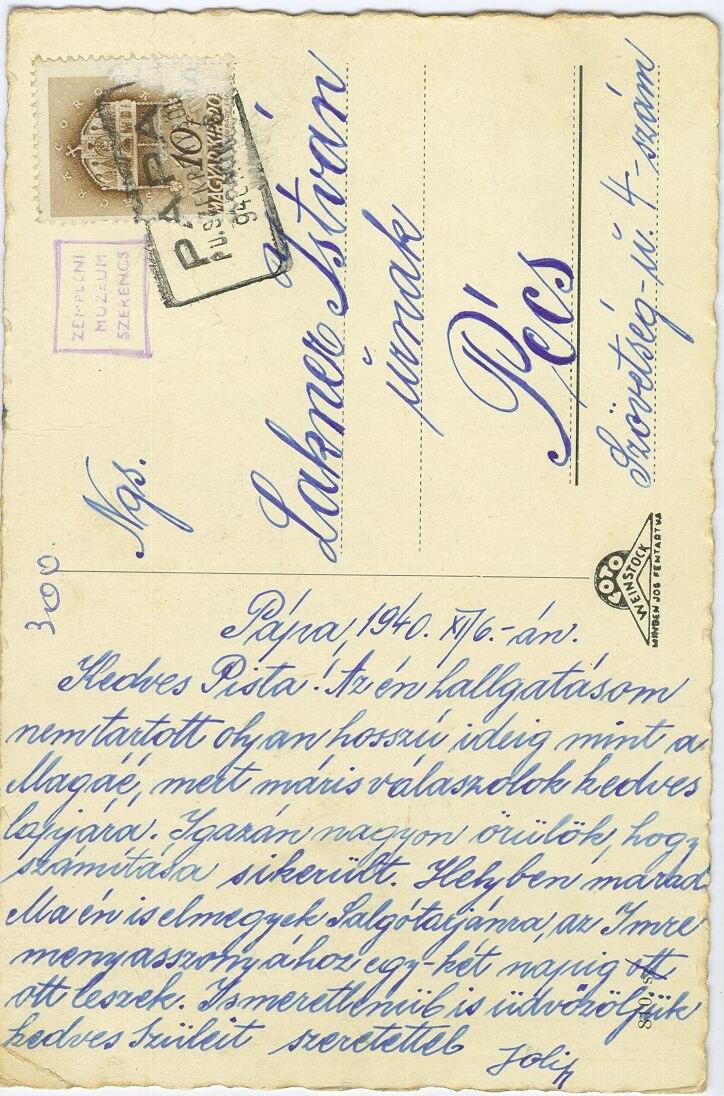 MAGYAR KIR. POSTA
PÁPA
ZEMPLÉNI
MÚZEUM
SZERENCS
300.
Ngs.
Lakner István
úrnak
Pécs
Szövetség-u. 4-szám
FOTO
WEINSTOCK
MINDEN JOG FENTARTVA
Pápa, 1940. XI/6.-án.
Kedves Pista! Az én hallgatásom
nem tartott olyan hosszú ideig mint a
Magáé, mert máris válaszolok kedves
lapjára. Igazán nagyon örülök, hogy
számítása sikerült. Helyben marad.
Ma én is elmegyek Salgótarjánra, az Imre
menyasszonyához egy-két napig ott
ott leszek. Ismeretlenül is üdvözöljük
kedves Szüleit szeretettel